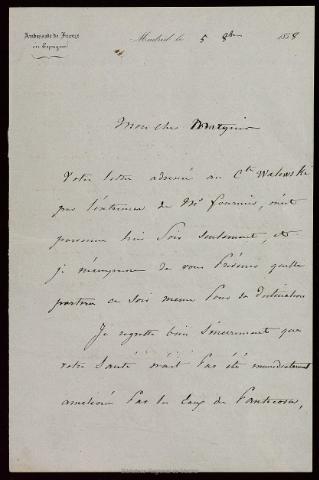 Ambassade de France
en Espagne
Madrid le 5 8bre 1858
Mon cher Marquis
Votre lettre adressée au Cte Walewski
par l'entremise de Mr Fournier, m'est
parvenue hier soir seulement, et
je m'empresse de vous prévenir qu'elle
partira ce soir même pour sa destination
Je regrette bien sincèrement que
votre santé n'ait pas été immédiatement
améliorée par les Eaux de Panticosa,